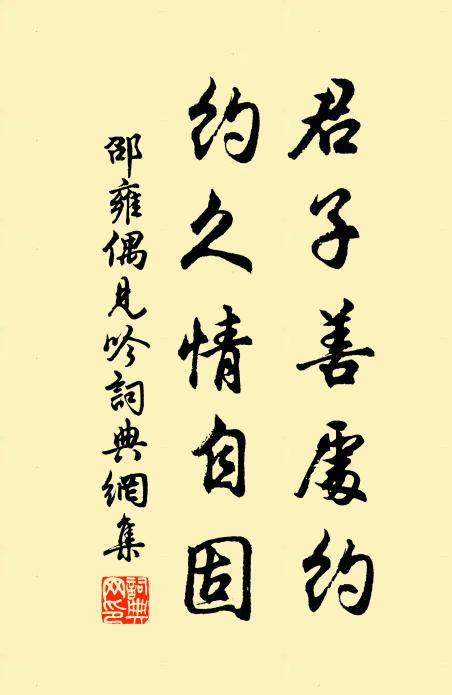 君子善處約
約久情自固
邵雍偶見吟詞典網集
詞典網印